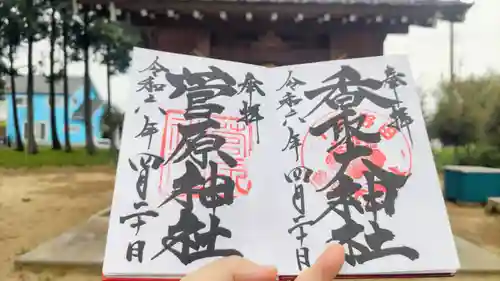 奉拝
香取大神社
令和八年四月二十日
奉拝
菅原神社
令和八年四月二十日